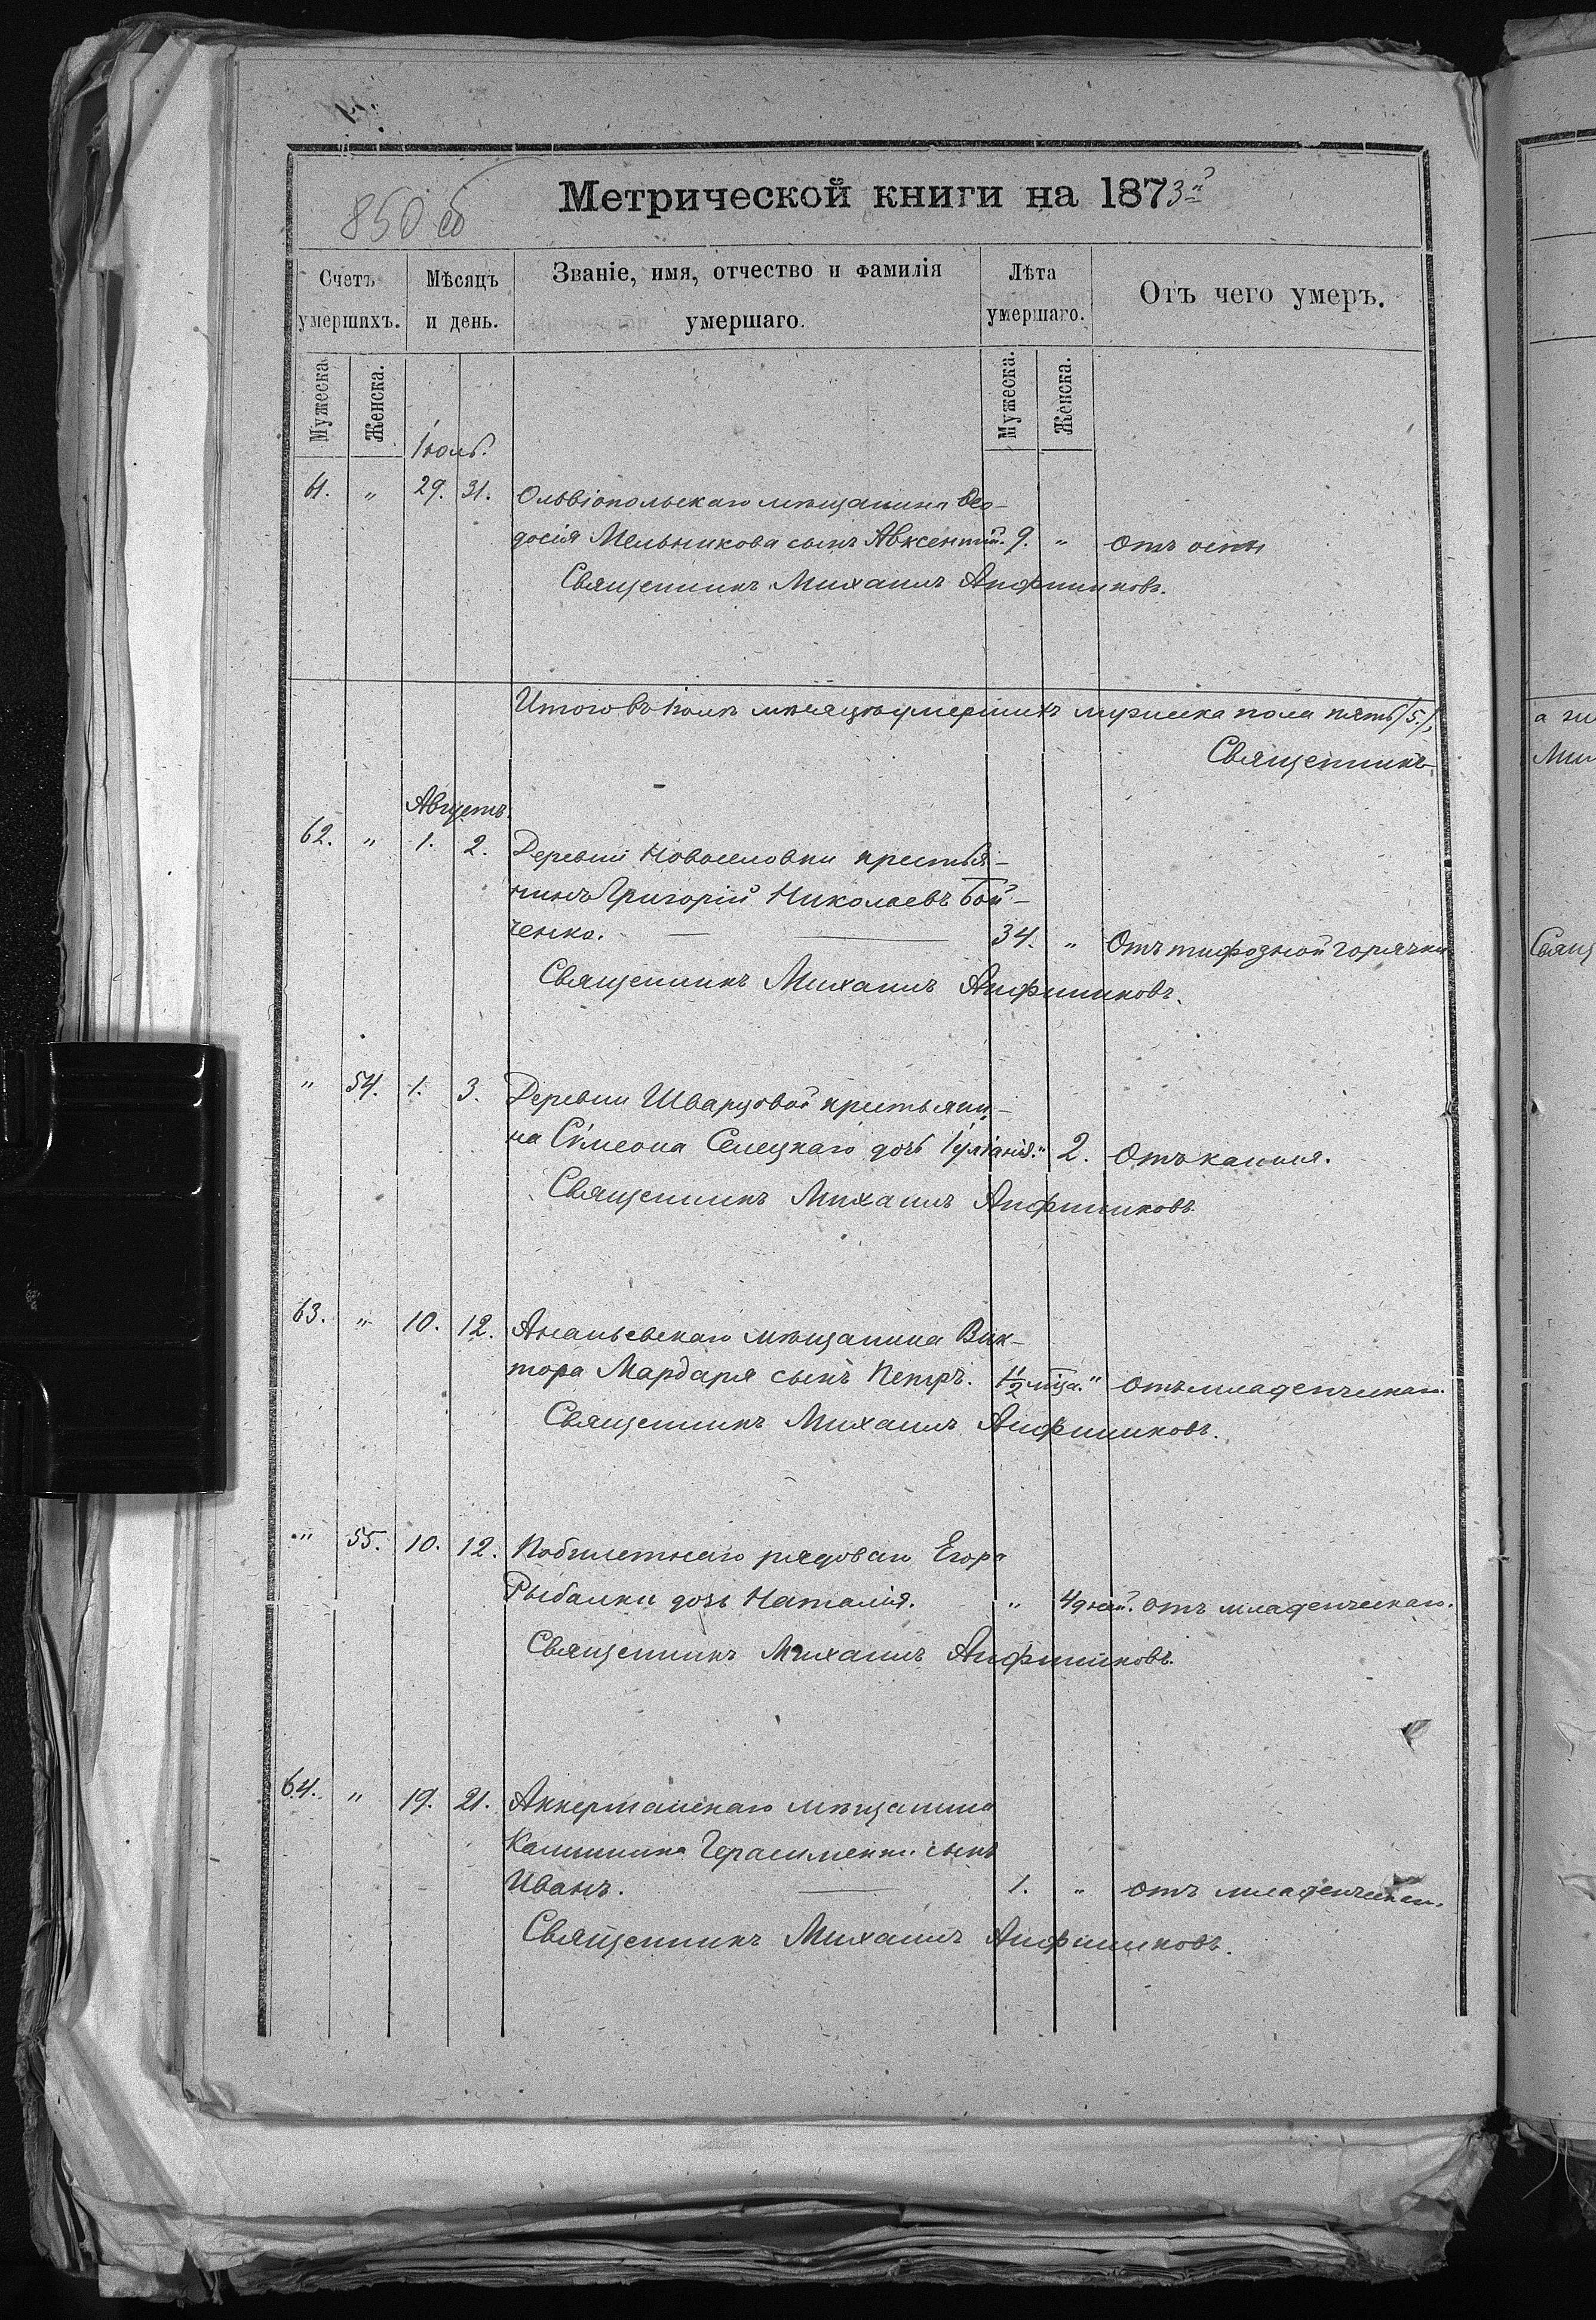 850 об
Метрической книги на 1873й
Счетъ умершихъ.
Мѣсяцъ и день.
Званіе, имя, отчество и фамилія умершаго.
Лѣта умершаго.
Отъ чего умеръ.
Мужеска. Женска.
Мужеска. Женска.
Іюль.
61. " 29. 31. Ольвіопольскаго мѣщанина Ѳео-
досія Мельникова сынъ Авксентій. 9. " Отъ оспы
Священникъ Михаилъ
Итого въ Іюлѣ мѣсяцѣ умершихъ мужеска пола пять /5./,
Священникъ
Августъ.
62. " 1. 2. Деревни Новоселовки крестья-
нинъ Григорій Николаевъ Бой-
ченко. 34. " Отъ тифозной горячки
Священникъ Михаилъ
" 54. 1. 3. Деревни Шварцовой крестьяни-
на Сѵмеона Селецкаго дочь Іуліанія. " 2. Отъ кашля.
Священникъ Михаилъ
63. " 10. 12. Ананьевскаго мѣщанина Вик-
тора Мардаря сынъ Петръ. 1 1/2 мца. " Отъ младенческаго.
Священникъ Михаилъ
" 55. 10. 12. Побилетнаго рядоваго Егора
Рыбалки дочь Наталія. " 4 дней. Отъ младенческаго.
Священникъ Михаилъ
64. " 19. 21. Аккерманскаго мѣщанина
Калинника Герасименки сынъ
Иванъ. 1. " Отъ младенческаго.
Священникъ Михаилъ
а
Мих
Свящ